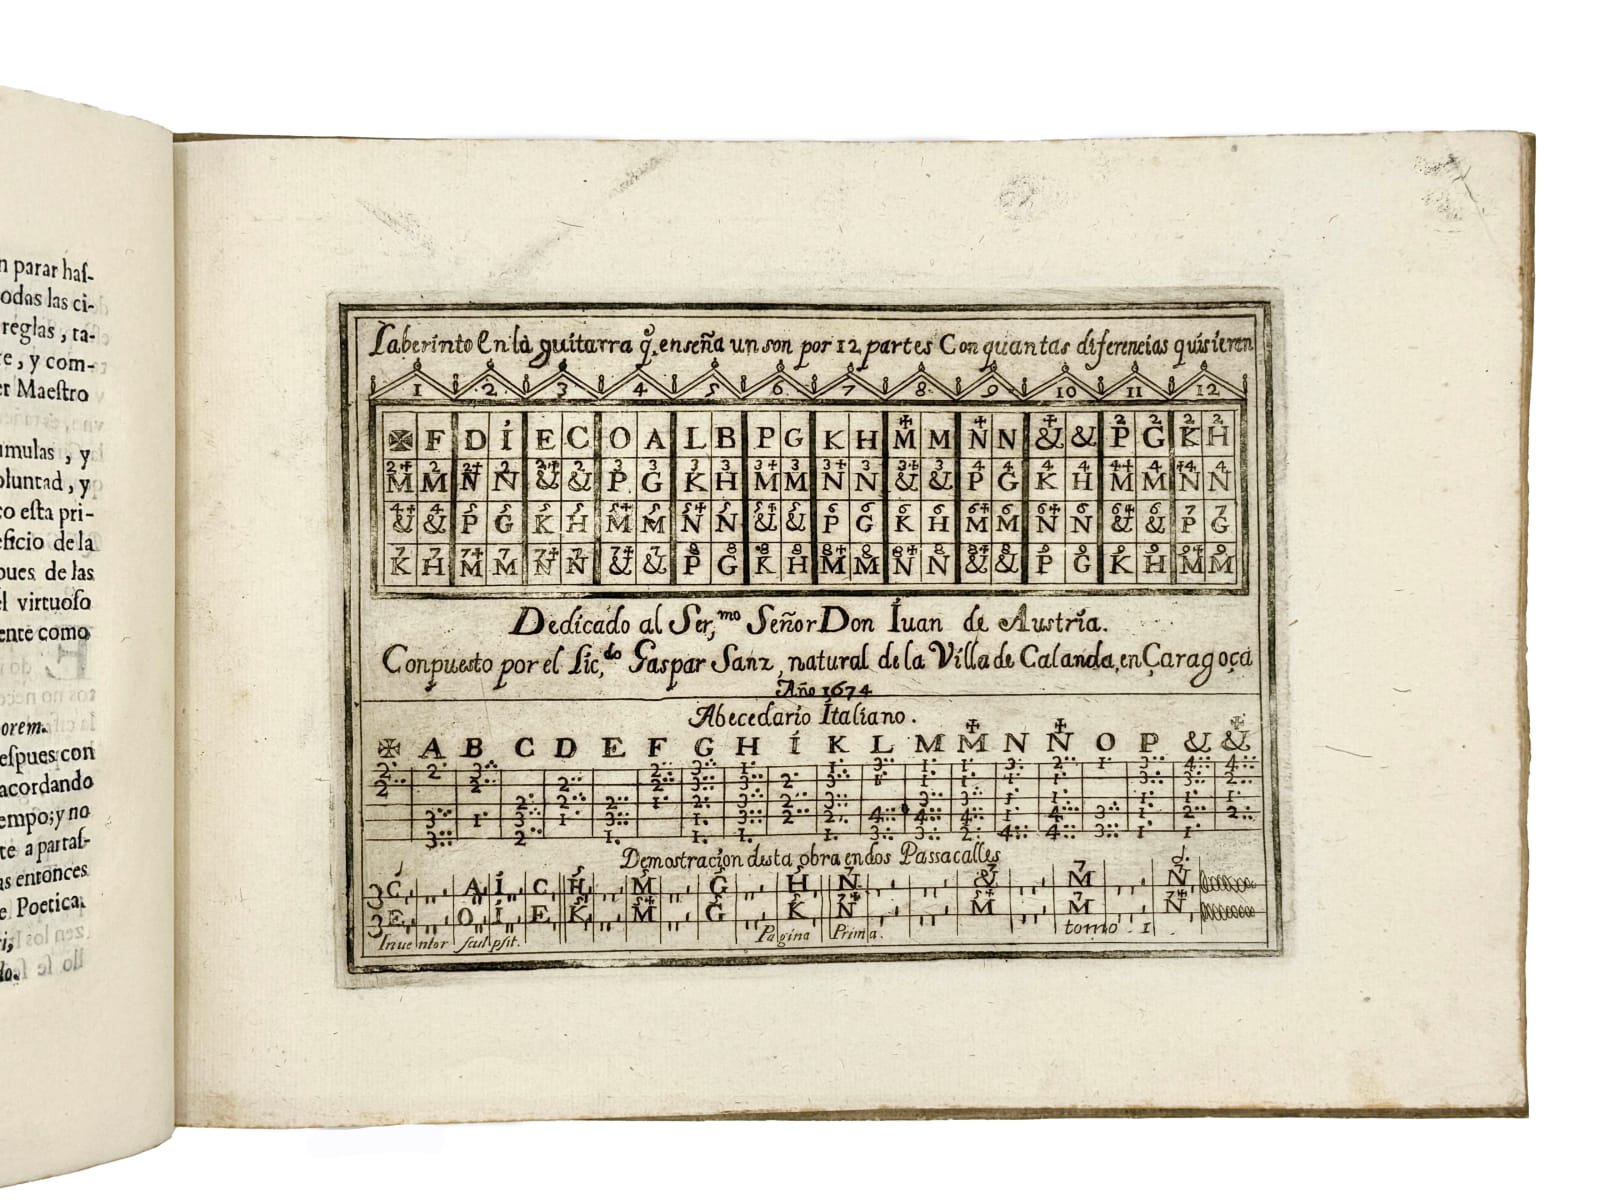 n parar haſ-
odas las ci-
reglas, ta-
re, y com-
er Maeſtro
umulas, y
oluntad, y
co eſta pri-
eficio de la
pues de las
el virtuoſo
ente como
orem.
eſpues con
acordando
empo; y no
te a partaſ-
as entonces
e Poetica.
Laberinto En la guitarra q̃. enseña un son por 12 partes Con quantas diferencias quisieren
1 2 3 4 5 6 7 8 9 10 11 12
✠ F D Í E C O A L B P G K H M✝ M N✝ N &✝ & P2 G2 K2 H2
M2✝ M2 N2✝ N2 &2✝ &2 P3 G3 K3 H3 M3✝ M3 N3✝ N3 &3✝ &3 P4 G4 K4 H4 M4✝ M4 N4✝ N4
&4✝ &4 P5 G5 K5 H5 M5✝ M5 N5✝ N5 &5✝ &5 P6 G6 K6 H6 M6✝ M6 N6✝ N6 &6✝ &6 P7 G7
K7 H7 M7✝ M7 N7✝ N7 &7✝ &7 P8 G8 K8 H8 M8✝ M8 N8✝ N8 &8✝ &8 P9 G9 K9 H9 M9✝ M9
Dedicado al Ser,mo Señor Don Iuan de Austria.
Conpuesto por el Lic,do Gaspar Sanz, natural de la Villa de Calanda, en Çaragoça
Año 1674
Abecedario Italiano.
✠ A B C D E F G H Í K L M M✝ N N✝ O P & &✝
Demostracion desta obra en dos Passacalles
3 C A Í C H M G H N & M N
3 E O Í E K M G K N M M N
Inventor sculpsit. Pagina Prima. tomo. 1